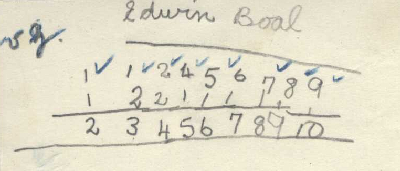 Edwin Boal
v g.
1 1 2 4 5 6 7 8 9
1 2 2 1 1 1 1 1 1
2 3 4 5 6 7 8 9 10